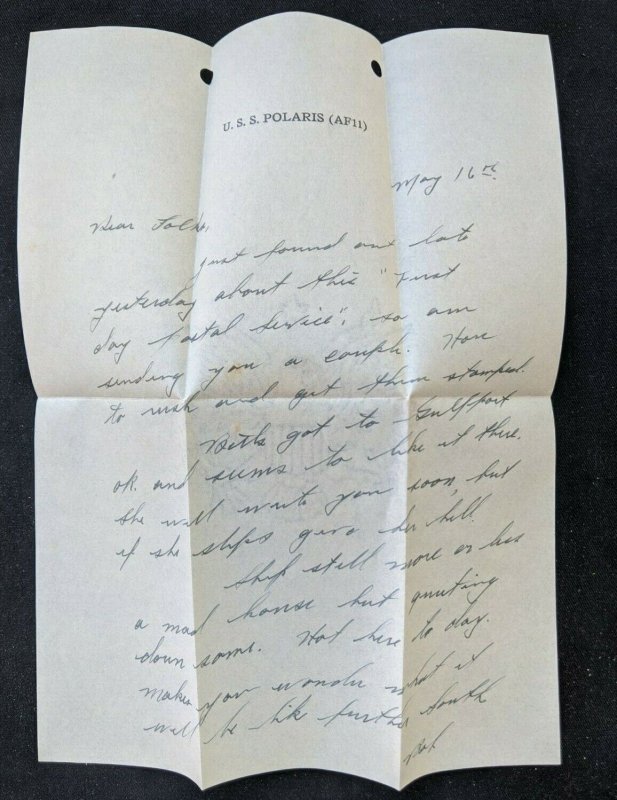 U. S. S. POLARIS (AF11)
May 16th
Dear Folks,
Just found out late
yesterday about this "First
day Postal Service", so am
sending you a couple. Have
to rush and get them stamped.
Beth got to Gulfport
ok. and seems to like it there.
She will write you soon, but
if she slips give her hell.
Ship still more or less
a mad house but quieting
down some. Hot here to day.
Makes you wonder what it
will be like further South